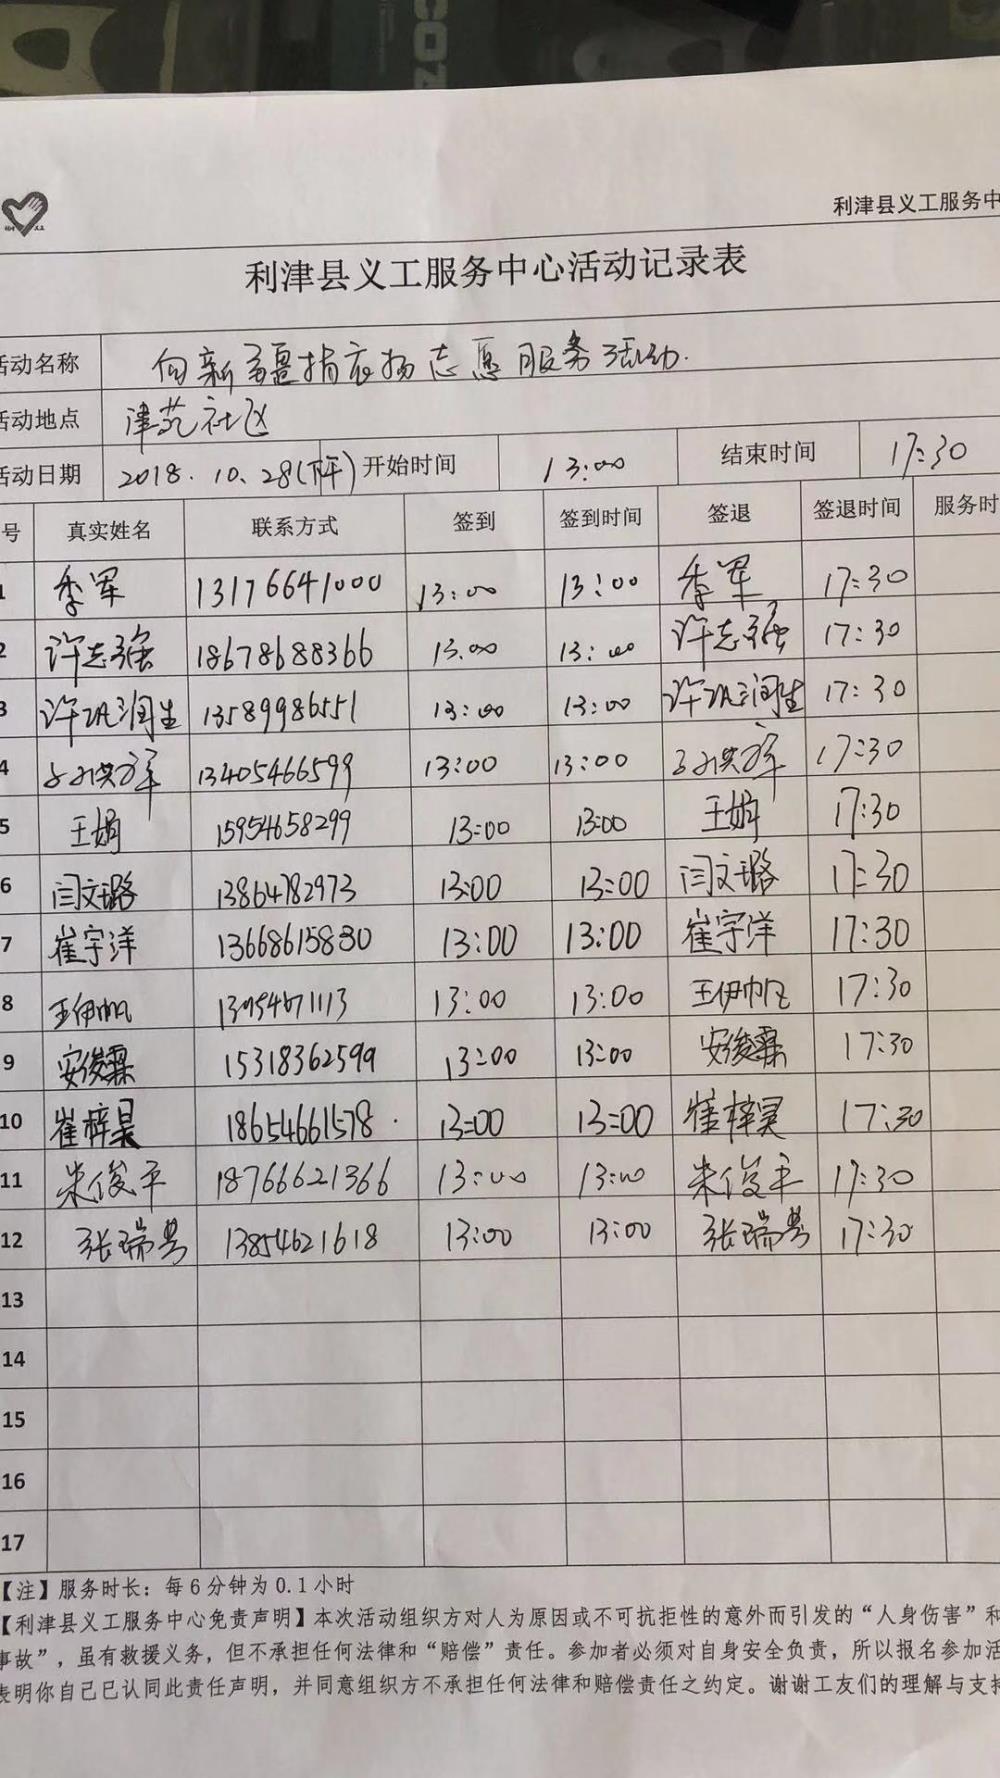 利津县义工服务中
利津县义工服务中心活动记录表
活动名称 向新疆捐衣物志愿服务活动.
活动地点 津苑社区
活动日期 2018.10.28(下午) 开始时间 13:00 结束时间 17:30
号 真实姓名 联系方式 签到 签到时间 签退 签退时间 服务时
1 季军 13176641000 13:00 13:00 季军 17:30
2 许志强 18678688366 13:00 13:00 许志强 17:30
3 许巩润生 13589986551 13:00 13:00 许巩润生 17:30
4 13405466599 13:00 13:00 17:30
5 王娟 15954658299 13:00 13:00 王娟 17:30
6 闫文璐 13864782973 13:00 13:00 闫文璐 17:30
7 崔宇洋 13668615830 13:00 13:00 崔宇洋 17:30
8 王伊帆 13954671113 13:00 13:00 王伊帆 17:30
9 安俊霖 15318362599 13:00 13:00 安俊霖 17:30
10 崔梓昊 18654661578 13:00 13:00 崔梓昊 17:30
11 朱俊平 18766621366 13:00 13:00 朱俊平 17:30
12 13854621618 13:00 13:00 17:30
13
14
15
16
17
【注】服务时长：每6分钟为0.1小时
【利津县义工服务中心免责声明】本次活动组织方对人为原因或不可抗拒性的意外而引发的“人身伤害”和
事故”，虽有救援义务，但不承担任何法律和“赔偿”责任。参加者必须对自身安全负责，所以报名参加活
表明你自己已认同此责任声明，并同意组织方不承担任何法律和赔偿责任之约定。谢谢工友们的理解与支持